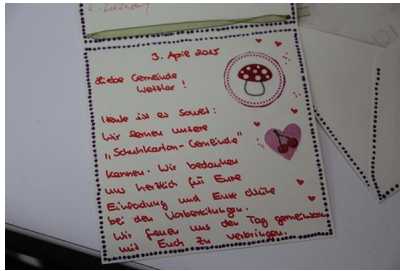 3. April 2015
Liebe Gemeinde
Wetzlar!
Heute ist es soweit:
Wir lernen unsere
"Schuhkarton-Gemeinde"
kennen. Wir bedanken
uns herzlich für Eure
Einladung und Eure Mühe
bei den Vorbereitungen.
Wir freuen uns den Tag gemeinsam
mit Euch zu verbringen.